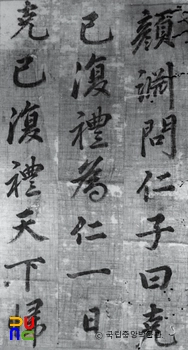 顏淵問仁子曰克
己復禮為仁一日
克己復禮天下歸
국립중앙박물관